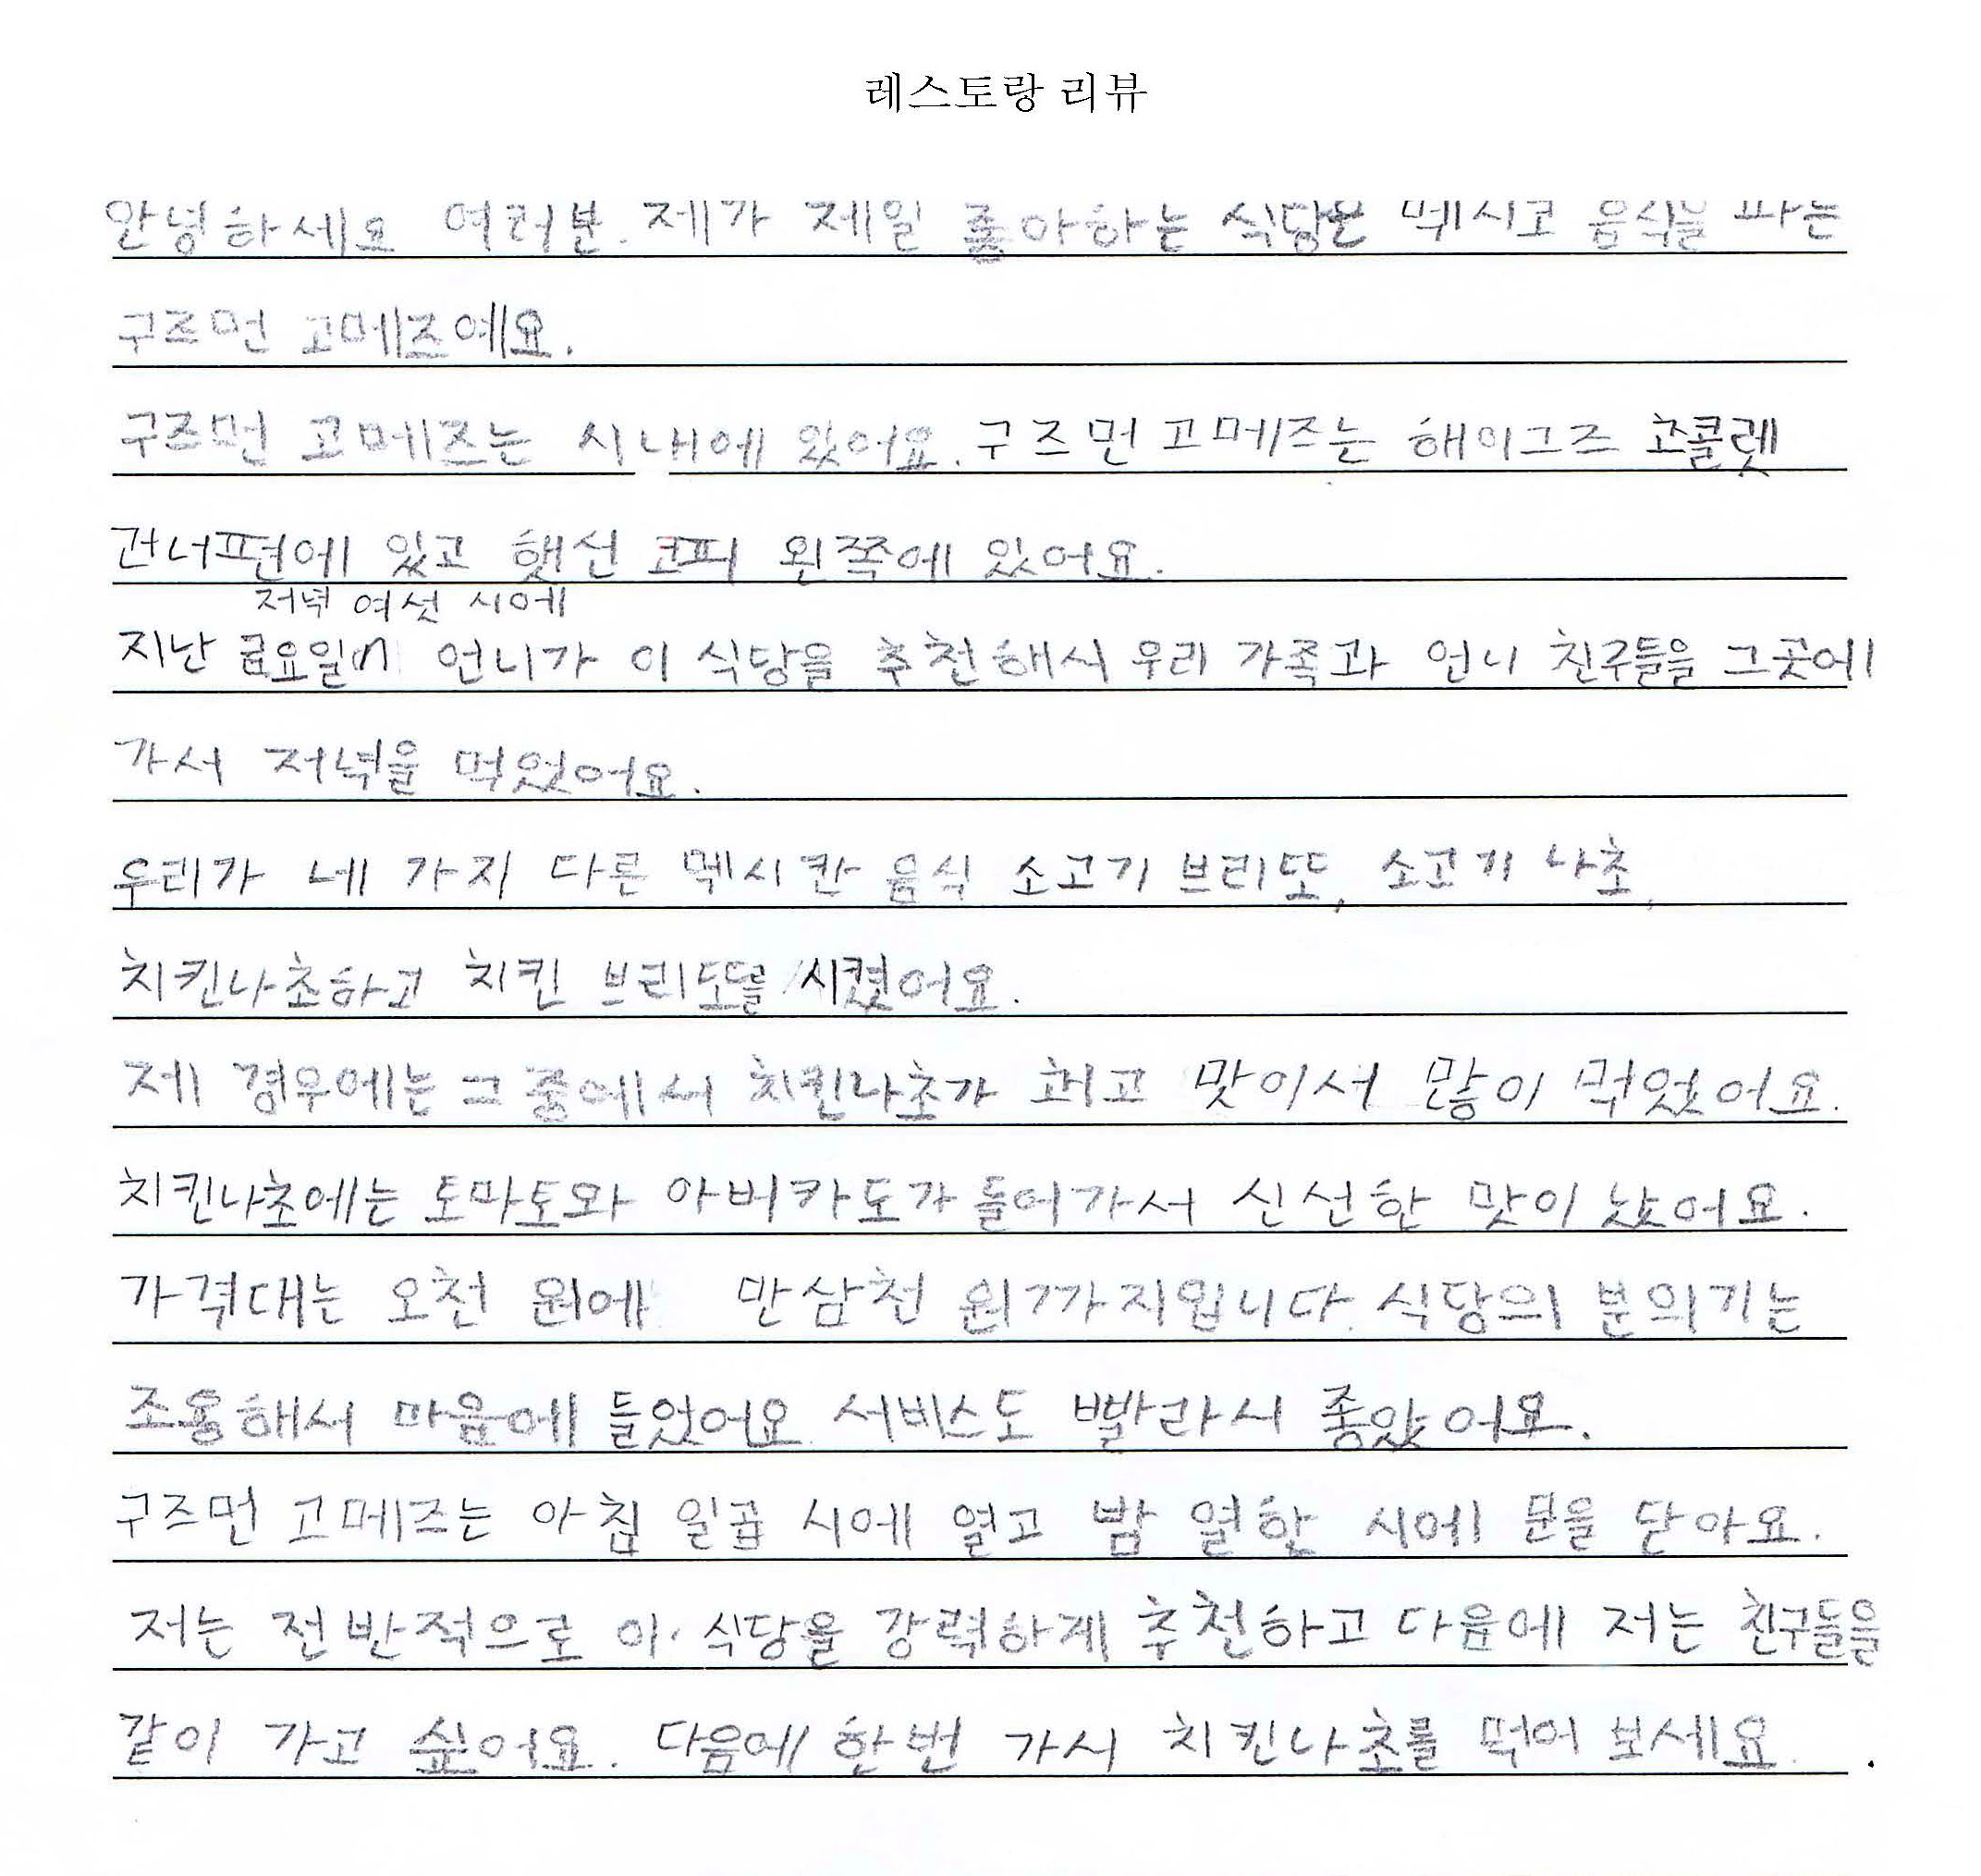 레스토랑 리뷰
안녕하세요 여러분. 제가 제일 좋아하는 식당은 멕시코 음식을 파는
구즈먼 고메즈예요.
구즈먼 고메즈는 시내에 있어요. 구즈먼 고메즈는 해이그즈 쵸콜렛
건너편에 있고 햇선 코피 왼쪽에 있어요.
저녁 여섯 시에
지난 금요일 언니가 이 식당을 추천해서 우리 가족과 언니 친구들을 그곳에
가서 저녁을 먹었어요.
우리가 네 가지 다른 멕시칸 음식 소고기 브리또, 소고기 나초,
치킨나초하고 치킨 브리또를 시켰어요.
제 경우에는 그 중에서 치킨나초가 최고 맛이서 많이 먹었어요.
치킨나초에는 토마토와 아버카도가 들어가서 신선한 맛이 났어요.
가격대는 오천 원에 만삼천 원까지입니다. 식당의 분의기는
조용해서 마음에 들었어요. 서비스도 빨라서 좋았어요.
구즈먼 고메즈는 아침 일곱 시에 열고 밤 열한 시에 문을 닫아요.
저는 전반적으로 이 식당을 강력하게 추천하고 다음에 저는 친구들을
같이 가고 싶어요. 다음에 한번 가서 치킨나초를 먹어 보세요.